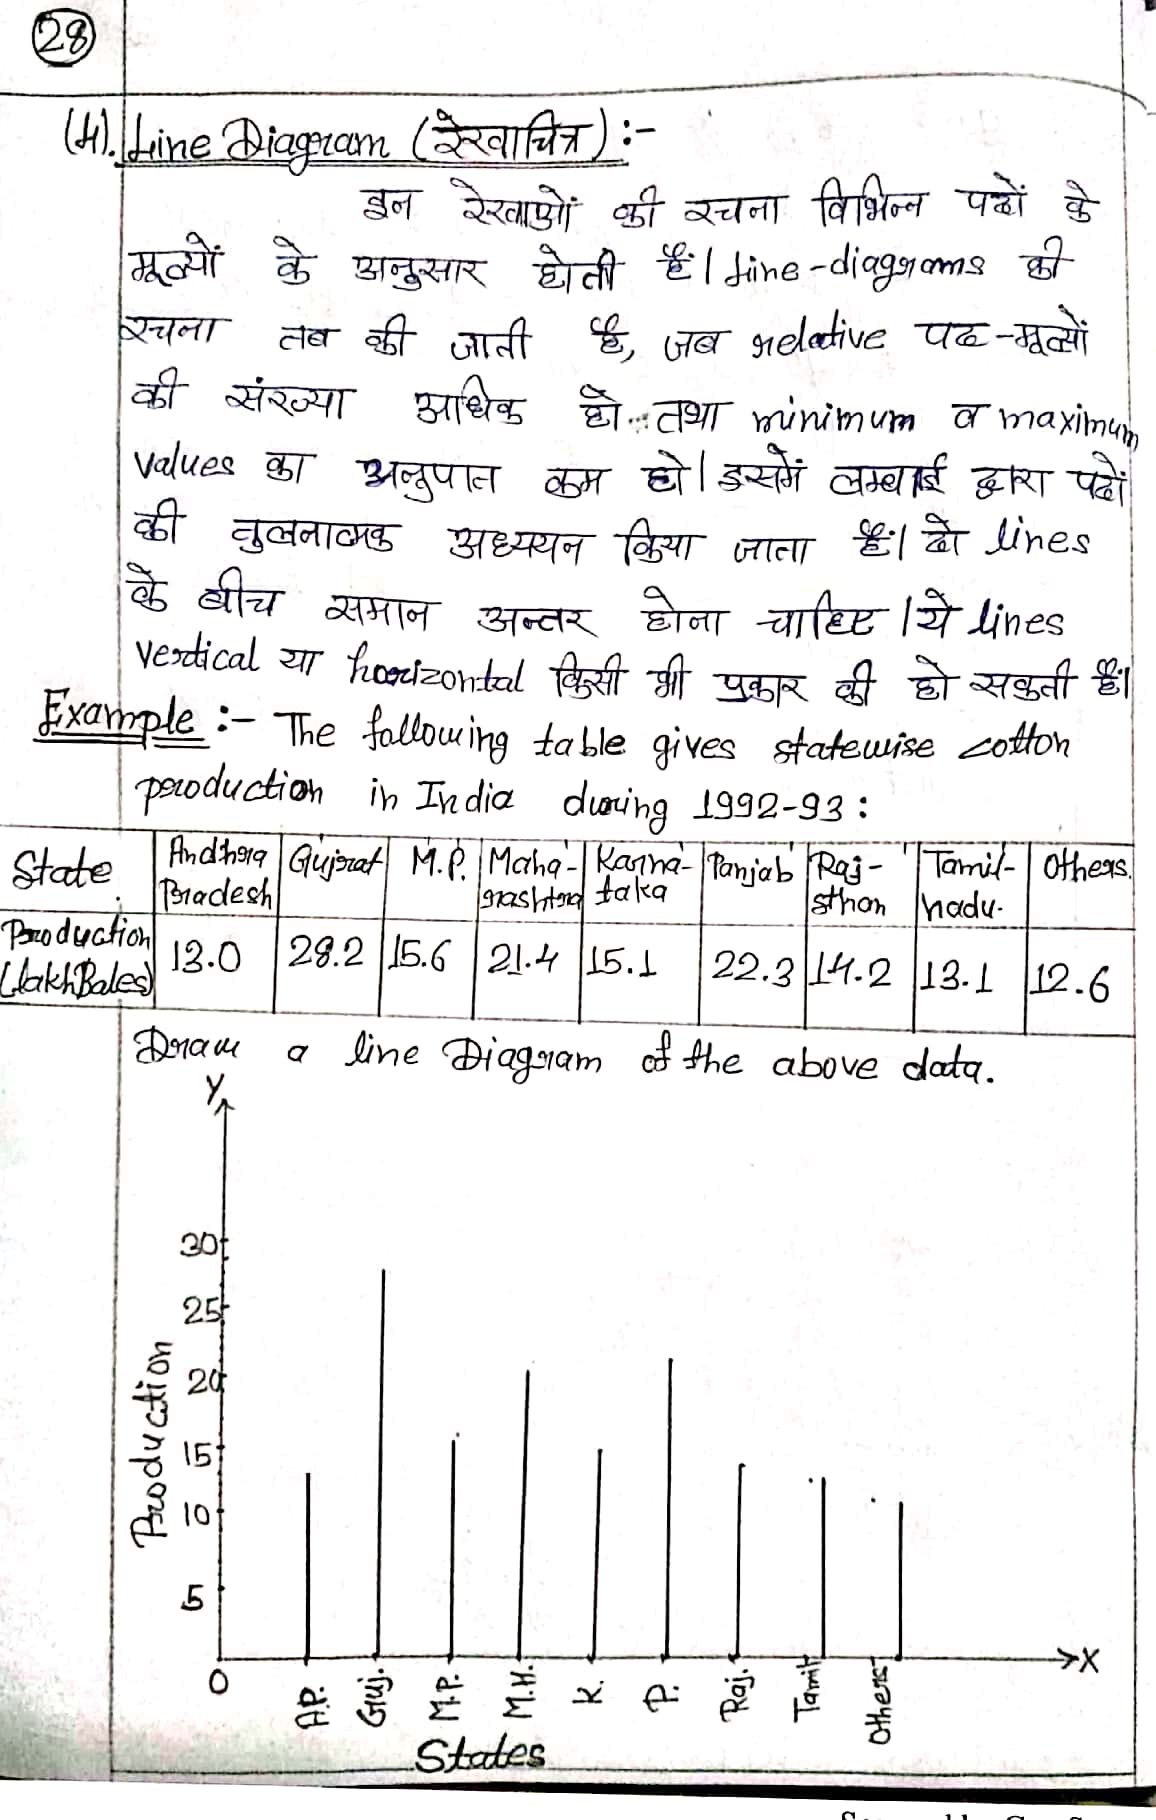 28
(4). Line Diagram (रेखाचित्र) :-
इन रेखाओं की रचना विभिन्न पदों के
मूल्यों के अनुसार होती हैं। Line-diagrams की
रचना तब की जाती है, जब relative पद-मूल्यों
की संख्या अधिक हो तथा minimum व maximum
values का अनुपात कम हो। इसमें लम्बाई द्वारा पदों
की तुलनात्मक अध्ययन किया जाता हैं। दो lines
के बीच समान अन्तर होना चाहिए। ये lines
vertical या horizontal किसी भी प्रकार की हो सकती हैं।
Example :- The following table gives statewise cotton
production in India during 1992-93:
State Andhra Pradesh Gujrat M.P. Maha-rashtra Karna-taka Panjab Raj-sthan Tamil-nadu. Others.
Production (Lakh Bales) 13.0 28.2 15.6 21.4 15.1 22.3 14.2 13.1 12.6
Draw a line Diagram of the above data.
Y
30
25
20
15
10
5
0
Production
X
A.P. Guj. M.P. M.H. K. P. Raj. Tamil Others
States